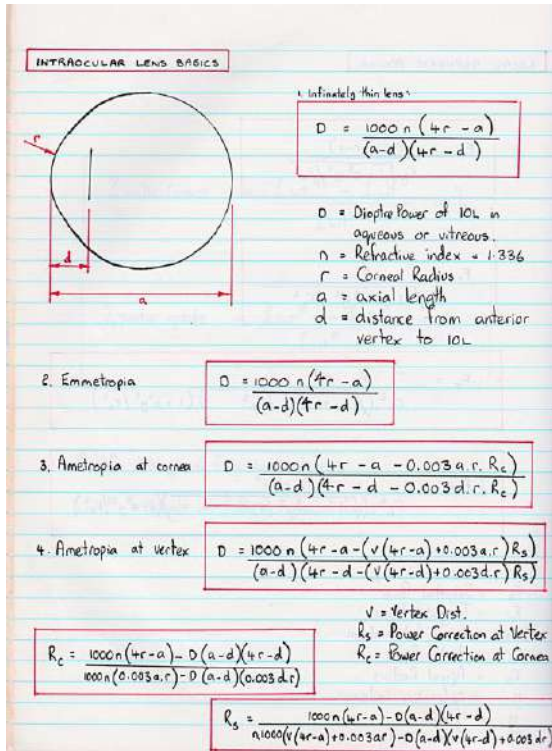 INTRAOCULAR LENS BASICS
1. Infinately thin lens:
D = 1000 n (4r - a) / (a-d)(4r - d)
r
d
a
D = Dioptre Power of IOL in
aqueous or vitreous.
n = Refractive index = 1.336
r = Corneal Radius
a = axial length
d = distance from anterior
vertex to IOL
2. Emmetropia
D = 1000 n (4r - a) / (a-d)(4r - d)
3. Ametropia at cornea
D = 1000n (4r - a - 0.003 a.r. Rc) / (a-d)(4r - d - 0.003 d.r. Rc)
4. Ametropia at vertex
D = 1000 n (4r - a - (v(4r-a) + 0.003a.r) Rs) / (a-d)(4r - d - (v(4r-d) + 0.003d.r) Rs)
V = Vertex Dist.
Rs = Power Correction at Vertex
Rc = Power Correction at Cornea
Rc = 1000n (4r-a) - D(a-d)(4r-d) / 1000n (0.003ar) - D(a-d)(0.003dr)
Rs = 1000n (4r-a) - D(a-d)(4r-d) / n1000(v(4r-a) + 0.003ar) - D(a-d)(v(4r-d) + 0.003dr)